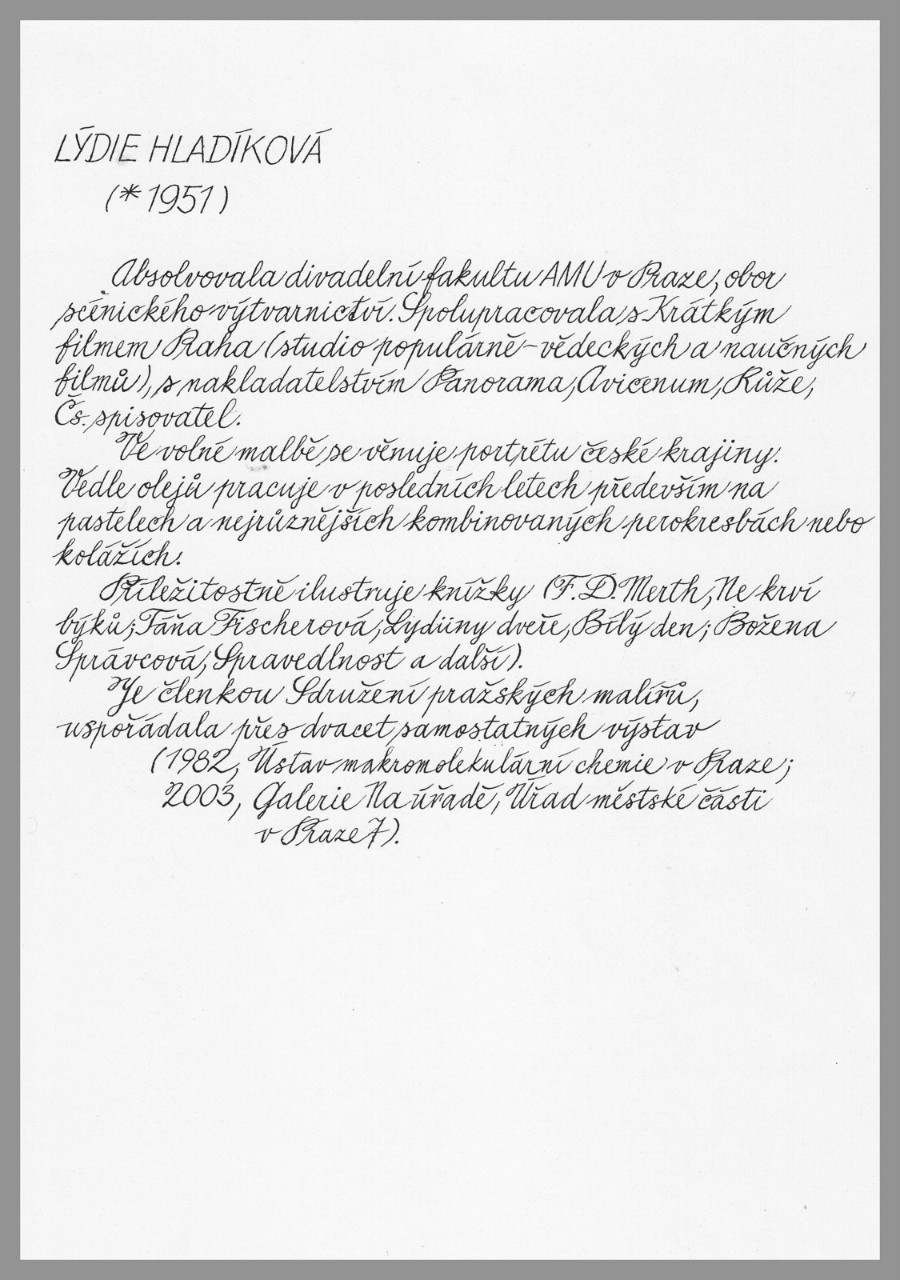 LÝDIE HLADÍKOVÁ
(* 1951)
Absolvovala divadelní fakultu AMU v Praze, obor
scénického výtvarnictví. Spolupracovala s Krátkým
filmem Praha (studio populárně-vědeckých a naučných
filmů), s nakladatelstvím Panorama, Avicenum, Růže,
Čs. spisovatel.
Ve volné malbě se věnuje portrétu české krajiny.
Vedle olejů pracuje v posledních letech především na
pastelech a nejrůznějších kombinovaných perokresbách nebo
kolážích.
Příležitostně ilustruje knížky (F. D. Merth, Ne krví
býků; Táňa Fischerová, Lydiiny dveře, Bílý den; Božena
Správcová, Spravedlnost a další).
Je členkou Sdružení pražských malířů,
uspořádala přes dvacet samostatných výstav
(1982, Ústav makromolekulární chemie v Praze;
2003, Galerie Na úřadě, Úřad městské části
v Praze 7).